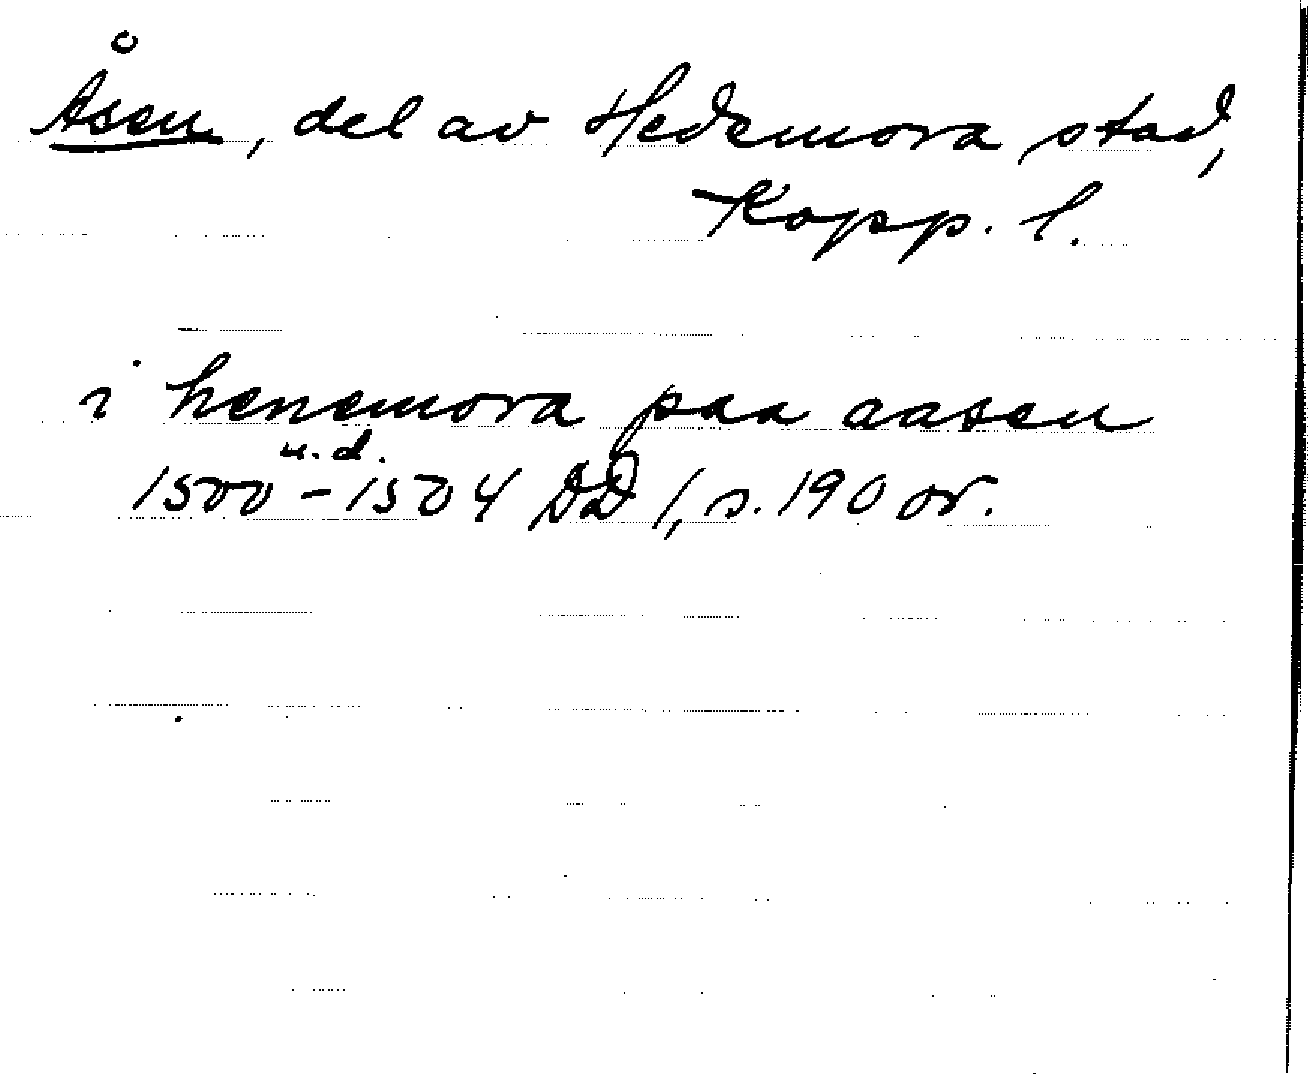 Åsen, del av Hedemora stad,
Kopp. l.
i henemora paa aasen
u. d.
1500-1504 DD 1, s. 190 or.